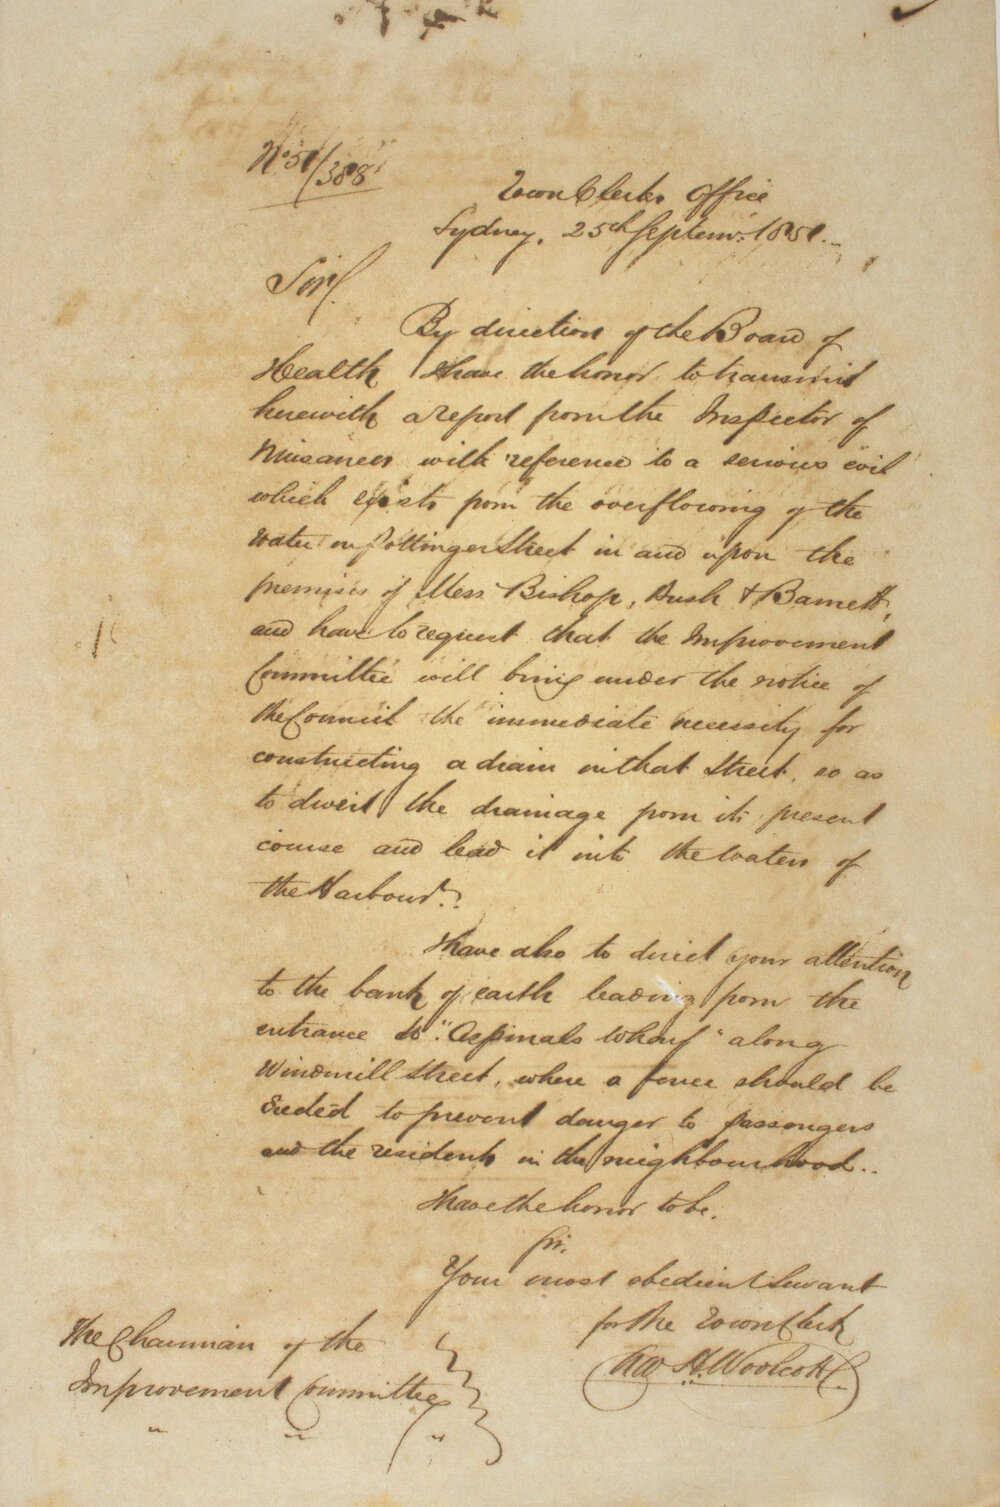 No 51/388
Town Clerks Office
Sydney, 25th Septemr. 1851.
Sir,
By direction of the Board of
Health I have the honor to transmit
herewith a report from the Inspector of
Nuisances with reference to a serious evil
which exists from the overflowing of the
Water on Pottinger Street in and upon the
premises of Messrs Bishop, Rush & Barnett,
and have to request that the Improvement
Committee will bring under the notice of
the Council the immediate necessity for
constructing a drain in that Street, so as
to divert the drainage from its present
course and lead it into the Waters of
the Harbour.
I have also to direct your attention
to the bank of earth leading from the
entrance to "Aspinals Wharf" along
Windmill Street, where a fence should be
Erected to prevent danger to passengers
and the residents in the neighbourhood..
I have the honor to be,
Sir,
Your most obedient Servant
for the Town Clerk
H. Woolcott
The Chairman of the
Improvement Committee
" " "